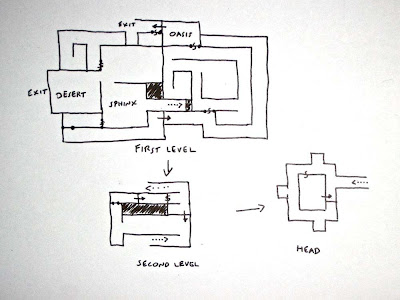 EXIT
OASIS
EXIT
DESERT
SPHINX
FIRST LEVEL
HEAD
SECOND LEVEL